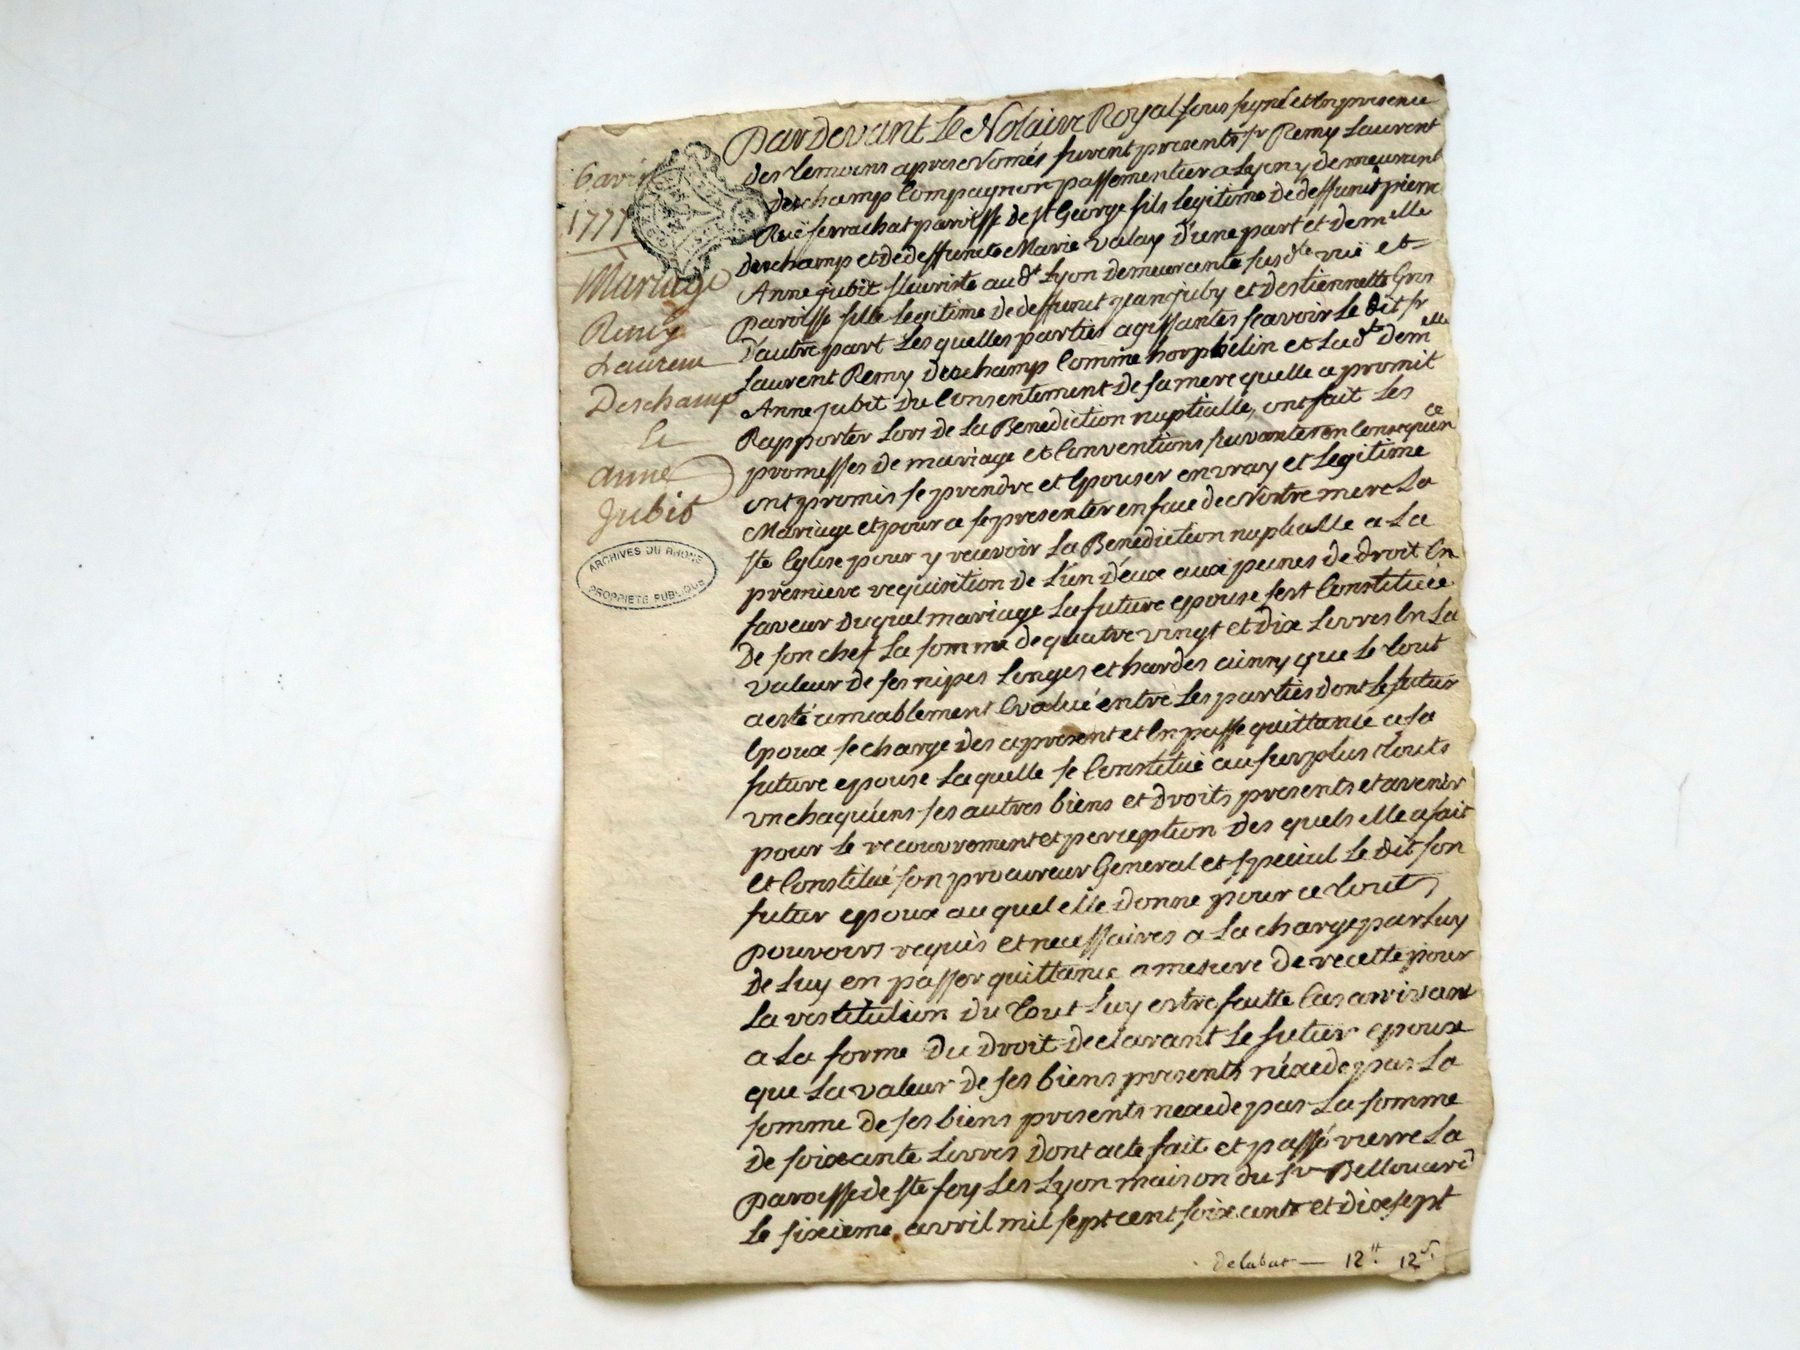 6 avril
1777
Mariage
Remy
Laurent
Deschamp
&
anne
Jubit
ARCHIVES DU RHONE
PROPRIETE PUBLIQUE
Pardevant Le Notaire Royal sous signé et En presence
des temoins apres només furent presents sr Remy Laurent
deschamp Compagnon passementier a Lyon y demeurant
Rüe ferrachat paroisse de st George fils legitime de deffunt pierre
deschamp et de deffuncte Marie valay d'une part et demelle
Anne jubit fleuriste aud't Lyon demeurante susd'te ruë et=
paroisse fille legitime de deffunt jean juby et d'estiennette Gros
d'autre part Les quelles parties agissantes sçavoir Le dit sr
Laurent Remy deschamp Comme horphelin et Lad'te demelle
Anne jubit du Consentement de sa mere quelle a promit
Rapporter Lors de La Benediction nuptialle, ont fait Les
promesses de mariage et Conventions suivantes en Consequence
ont promis se prendre et Epouser en vray et Legitime
Mariage et pour ce se presenter en face de Nostre mere La
ste Eglise pour y recevoir La Benediction nuptialle a La
premiere requisition de L'un d'eux aux peines de droit En
faveur duquel mariage La future epouse sest Constituée
De son chef La somme de quatre vingt et dix Livres En La
valeur de ses nipes Linges et hardes ainsy que Le tout
a esté amiablement Evalué entre Les parties dont Le futur
Epoux se charge des a present et En passe quittance a sa
future epouse Laquelle se Constitue au surplus touts
un chaqu'uns ses autres biens et droits presents et avenir
pour Le recouvrement et perception des quels elle a fait
et Constitué son procureur General et special Le dit son
futur epoux au quel elle donne pour ce touts
pouvoirs requis et necessaires a La charge par Luy
de Luy en passer quittance a mesure de recette pour
La restitution du tout Luy estre faitte Cas arrivant
a La forme du droit declarant Le futur epoux
que La valeur de ses biens presents n'exede pas La
somme de ses biens presents nexede pas La somme
de soixante Livres dont acte fait et passé rierre La
paroisse de ste foy Les Lyon maison du sr Bellouard
Le sixieme avril mil sept cent soixante et dix sept
delabat — 12# 12s.